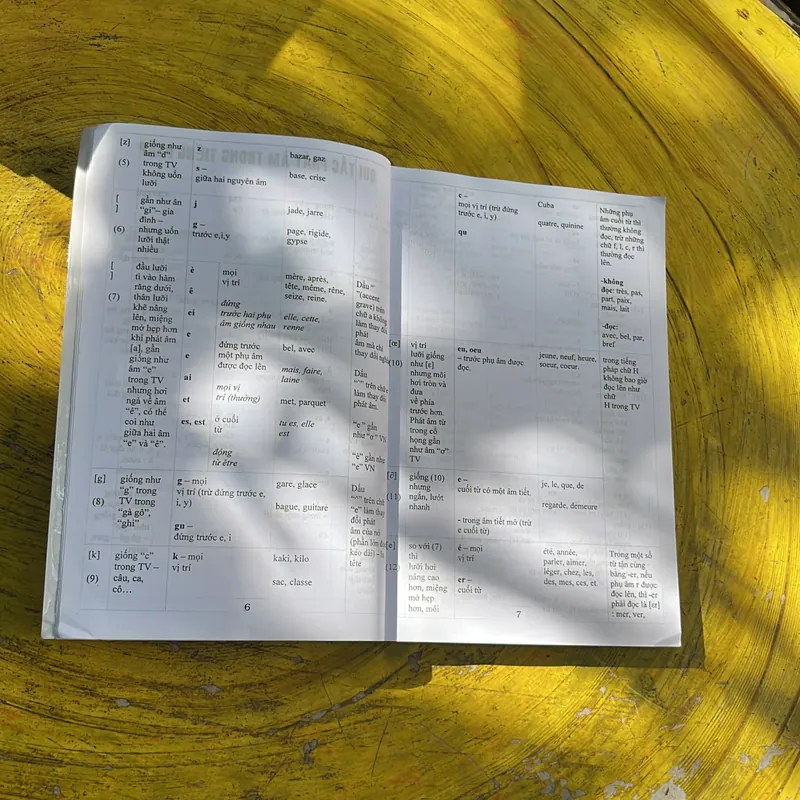 [z]
(5)
giống như
âm "d"
trong TV
không uốn
lưỡi
z
s –
giữa hai nguyên âm
bazar, gaz
base, crise
[
]
(6)
gần như ân
"gi"– gia
đình –
nhưng uốn
lưỡi thật
nhiều
j
g –
trước e,i,y
jade, jarre
page, rigide,
gypse
[
]
(7)
đầu lưỡi
tì vào hàm
răng dưới,
thân lưỡi
khẽ nâng
lên, miệng
mở hẹp hơn
khi phát âm
[a], gần
giống như
âm "e"
trong TV
nhưng hơi
ngả về âm
"ê", có thể
coi như
giữa hai âm
"e" và "ê".
è
ê
ei
e
e
ai
et
es, est
mọi
vị trí
đứng
trước hai phụ
âm giống nhau
đứng trước
một phụ âm
được đọc lên
mọi vị
trí (thường)
ở cuối
từ
động
từ être
mère, après,
tête, même, rêne,
seize, reine.
elle, cette,
renne
bel, avec
mais, faire,
laine
met, parquet
tu es, elle
est
Dấu "`
"(accent
grave) trên
chữ a không
làm thay đổi
phát
âm mà chỉ
thay đổi nghĩa
Dấu
làm thay đổi
phát âm.
"e" gần
như "ơ" VN
"ê" gần như
"e" VN
[g]
(8)
giống như
"g" trong
TV trong
"gà gô",
"ghi"
g – mọi
vị trí (trừ đứng trước e,
i, y)
gu –
đứng trước e, i
gare, glace
bague, guitare
Dấu
"^" trên chữ
"e" làm thay
đổi phát
âm của nó
(phần lớn đọc
kéo dài) – là
tête
[k]
(9)
giống "c"
trong TV –
câu, ca,
cô…
k – mọi
vị trí
kaki, kilo
sac, classe
6
c –
mọi vị trí (trừ đứng
trước e, i, y)
qu
Cuba
quatre, quinine
Những phụ
âm cuối từ thì
thường không
đọc, trừ những
chữ f, l, c, r thì
thường đọc
lên.
-không
đọc: très, pas,
part, paix,
mais, lait
-đọc:
avec, bel, par,
bref
[œ]
(10)
vị trí
lưỡi giống
như [ɛ]
nhưng môi
hơi tròn và
đưa
về phía
trước hơn.
Phát âm từ
trong cổ
họng gần
như âm "ơ"
TV
eu, oeu
– trước phụ âm được
đọc.
jeune, neuf, heure,
soeur, coeur.
trong tiếng
pháp chữ H
không bao giờ
đọc lên như
chữ
H trong TV
(11)
giống (10)
nhưng
ngắn, lướt
nhanh
e –
cuối từ có một âm tiết.
- trong âm tiết mở (trừ
e cuối từ)
je, le, que, de
regarde, demeure
[e]
(12)
so với (7)
thì
lưỡi hơi
nâng cao
hơn, miệng
mở hẹp
hơn, môi
é – mọi
vị trí
er –
cuối từ
été, année,
parler, aimer,
léger, chez, les,
des, mes, ces, et.
Trong một số
từ tận cùng
bằng -er, nếu
phụ âm r được
đọc lên, thì -er
phải đọc là [ɛr]
: mer, ver,
7